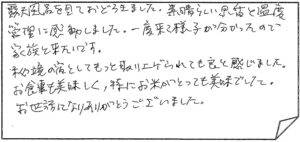 露天風呂を見ておどろきました。素晴らしい思告と温度
管理に感動しました。一度来て様子が分かったので
家族と来たいです。
秘境の宿としてもっと取り上げられても良と感じました。
お食事も美味しく、特にお米がとっても美味でした。
お世話になりありがとうございました。